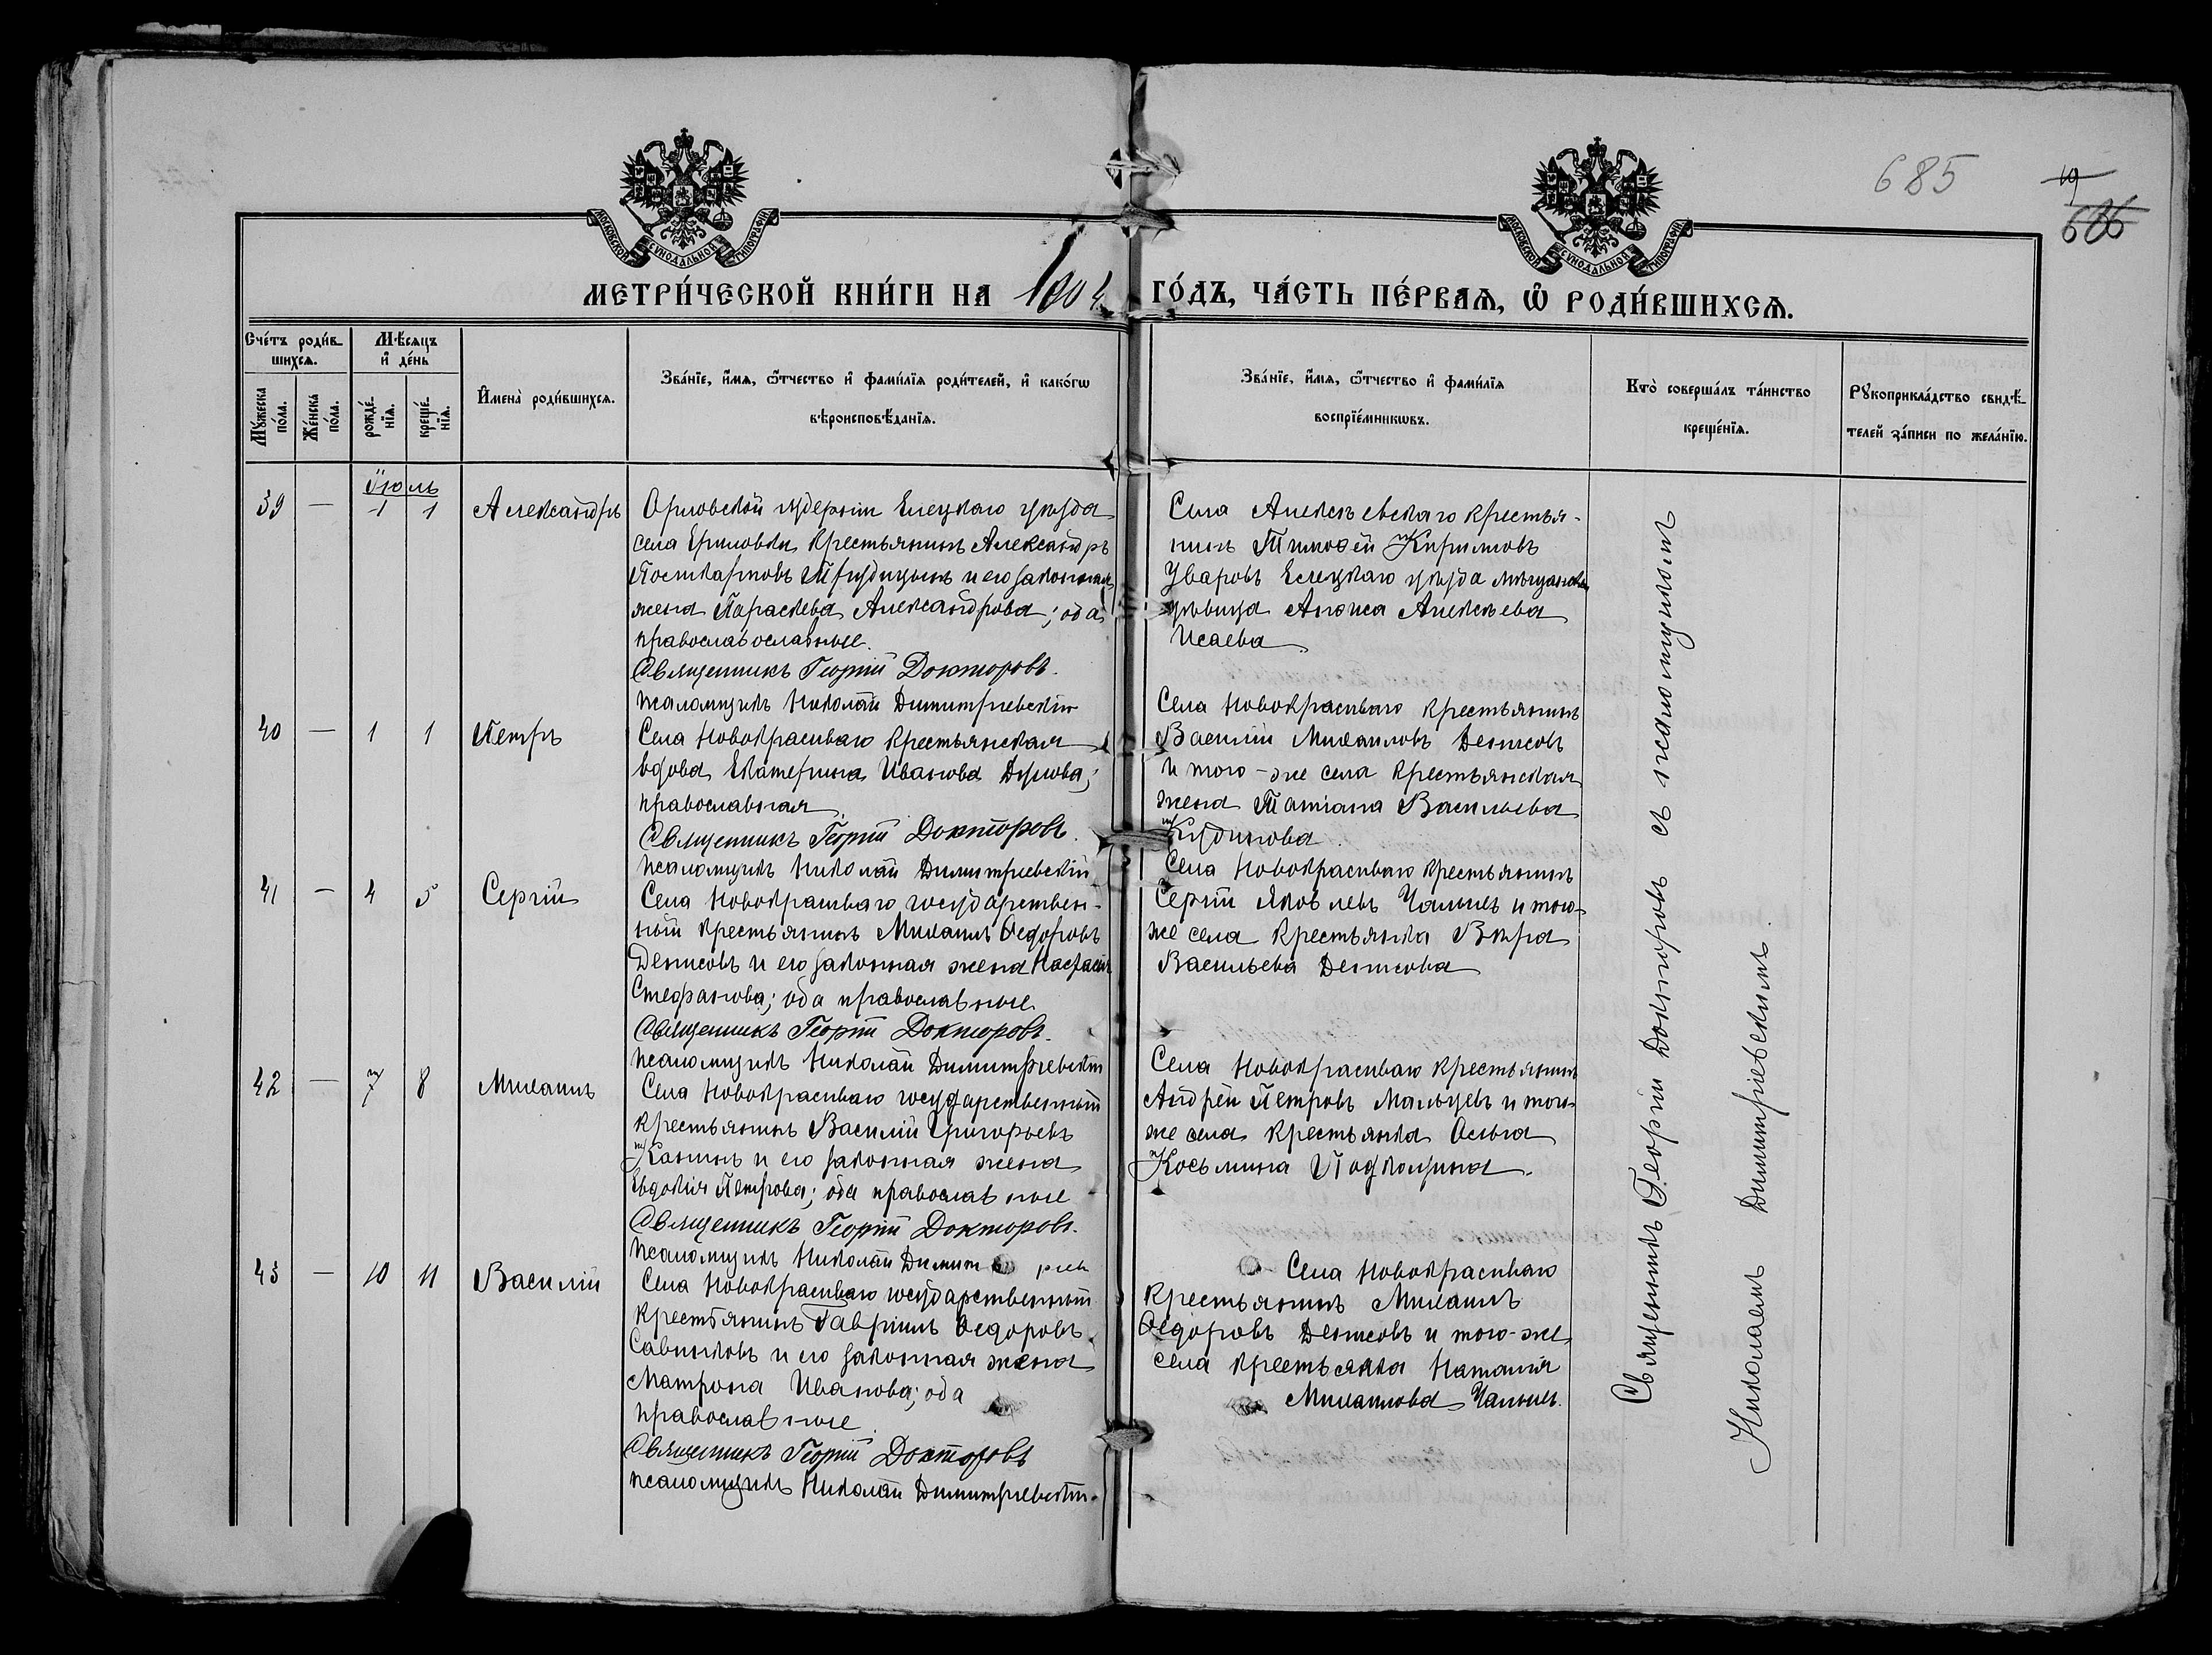 685
19
686
МОСКОВСКОЙ СѴНОДАЛЬНОЙ ТИПОГРАФІИ
МОСКОВСКОЙ СѴНОДАЛЬНОЙ ТИПОГРАФІИ
МЕТРИ́ЧЕСКОЙ КНИ́ГИ НА 1904 ГО́ДЪ, ЧА́СТЬ ПЕ́РВАѦ, Ѡ҆ РОДИ́ВШИХСѦ.
Сче́тъ роди́в-
шихсѧ.
Мѣ́сѧцъ
и҆ де́нь
Мꙋ́жеска по́ла.
Же́нска по́ла.
рожде́-нїѧ.
креще́-нїѧ.
И҆мена̀ роди́вшихсѧ.
Зва́нїе, и҆́мѧ, ѻ҆́тчество и҆ фами́лїѧ роди́телей, и҆ како́гѡ
вѣроисповѣ́данїѧ.
Зва́нїе, и҆́мѧ, ѻ҆́тчество и҆ фами́лїѧ
воспрїе́мникѡвъ.
Кто̀ соверша́лъ та́инство
креще́нїѧ.
Рꙋкоприкла́дство свидѣ́-
телей за́писи по жела́нїю.
Іюль
39 — 1 1 Александръ
Орловской губерніи Елецкаго уѣзда
села Ериловки крестьянинъ Александръ
Поликарповъ и его законная
жена Параскева Александрова; оба
православославные.
Священникъ Георгій Докторовъ.
Псаломщикъ Николай Димитріевскій
Села Алексѣевскаго крестья-
нинъ Тимоѳей Кириловъ
Уваровъ Елецкаго уѣзда мѣщанская
дѣвица Аниса Алексѣева
Исаева
40 — 1 1 Петръ
Села Новокрасиваго крестьянская
вдова Екатерина Иванова Дурнова;
православная.
Священникъ Георгій Докторовъ.
Псаломщикъ Николай Димитріевскій
Села Новокрасиваго крестьянинъ
Василій Михаиловъ Денисовъ
и того-же села крестьянская
жена Татіана Васильева
Кудинова.
41 — 4 5 Сергій
Села Новокрасиваго государствен-
ный крестьянинъ Михаилъ Ѳедоровъ
Денисовъ и его законная жена Настасія
Стефанова; оба православные.
Священникъ Георгій Докторовъ.
Псаломщикъ Николай Димитріевскій
Села Новокрасиваго крестьянинъ
Сергій Яковлевъ Чалыхъ и того-
же села крестьянка Вѣра
Васильева Денисова
42 — 7 8 Михаилъ
Села Новокрасиваго государственный
крестьянинъ Василій Григорьевъ
Канинъ и его законная жена
Евдокія Петрова; оба православные
Священникъ Георгій Докторовъ.
Псаломщикъ Николай Димитріев
Села Новокрасиваго крестьянинъ
Андрей Петровъ Мальцевъ и того-
же села крестьянка Ольга
Косьмина Подкопина.
43 — 10 11 Василій
Села Новокрасиваго государственный
крестьянинъ Гавріилъ Ѳедоровъ
Савенковъ и его законная жена
Матрона Иванова; оба
православные.
Священникъ Георгій Докторовъ
Псаломщикъ Николай Димитріевскій.
Села Новокрасиваго
крестьянинъ Михаилъ
Ѳедоровъ Денисовъ и того-же
села крестьянка Наталія
Михаилова Чалыхъ.
Священникъ Георгій Докторовъ съ псаломщикомъ
Николаемъ Димитріевскимъ.